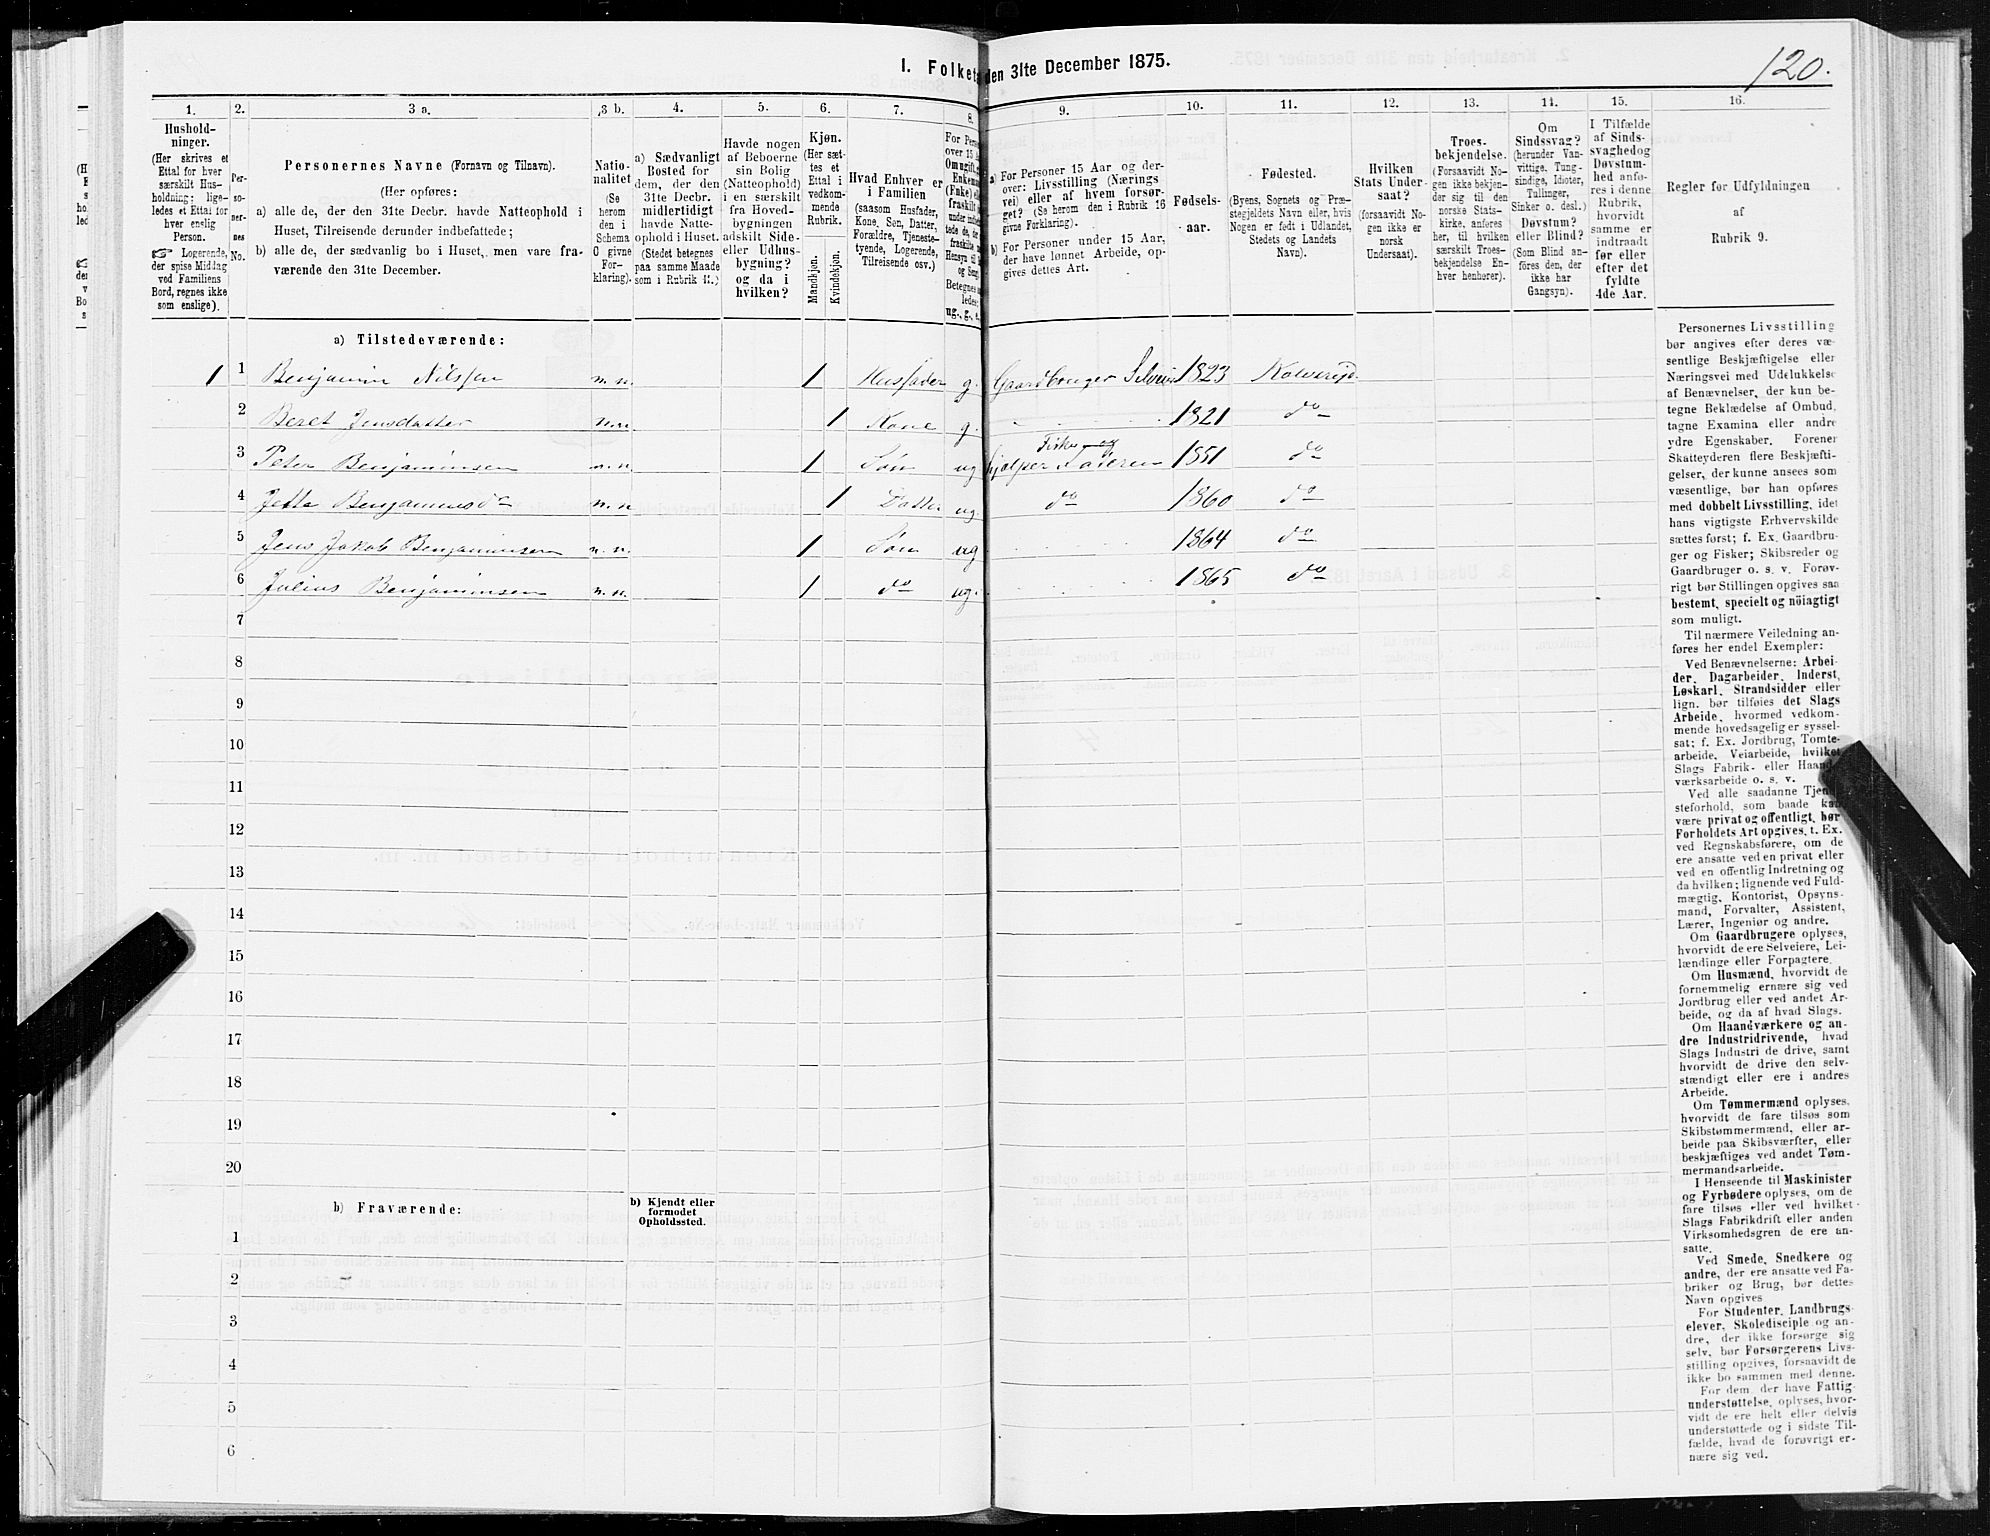 120.
I. Folket
den 31te December 1875.
1.
2.
3 a.
3 b.
4.
5.
6.
7.
8.
9.
10.
11.
12.
13.
14.
15.
16.
Hushold-
ninger.
(Her skrives et
Ettal for hver
særskilt Hus-
holdning; lige-
ledes et Ettal for
hver enslig
Person.
☞ Logerende,
der spise Middag
ved Familiens
Bord, regnes ikke
som enslige).
Per-
so-
ner-
nes
No.
Personernes Navne (Fornavn og Tilnavn).
(Her opføres:
a) alle de, der den 31te Decbr. havde Natteophold i
Huset, Tilreisende derunder indbefattede;
b) alle de, der sædvanlig bo i Huset, men vare fra-
værende den 31te December.
Natio-
nalitet
(Se
herom
den i
Schema
0 givne
For-
klaring).
a) Sædvanligt
Bosted for
dem, der den
31te Decbr.
midlertidigt
havde Natte-
ophold i Huset.
(Stedet betegnes
paa samme Maade
som i Rubrik 11.)
Havde nogen
af Beboerne
sin Bolig
(Natteophold)
i en særskilt
fra Hoved-
bygningen
adskilt Side-
eller Udhus-
bygning?
og da i
hvilken?
Kjøn.
(Her sæt-
tes et
Ettal i
vedkom-
mende
Rubrik.
Mandkjøn.
Kvindekjøn.
Hvad Enhver er
i Familien
(saasom Husfader,
Kone, Søn, Datter,
Forældre, Tjeneste-
tyende, Logerende,
Tilreisende osv.)
For Pers
over 15 A
Omugift,
Enkem
(Fnke) e
fraskilt
under
Hensyn til
og Seng
Betegnes
ledes:
ug., g., e.
a) For Personer 15 Aar og der-
over: Livsstilling (Nærings
vei) eller af hvem forsør-
get? (Se herom den i Rubrik 16
givne Forklaring).
b) For Personer under 15 Aar,
der have lønnet Arbeide, op-
gives dettes Art.
Fødsels-
aar.
Fødested.
(Byens, Sognets og Præ-
stegjeldets Navn eller, hvis
Nogen er født i Udlandet,
Stedets og Landets
Navn).
Hvilken
Stats Under-
saat?
(forsaavidt No-
gen ikke er
norsk
Undersaat).
Troes-
bekjendelse.
(Forsaavidt No-
gen ikke bekjen-
der sig til den
norske Stats-
kirke, anføres
her, til hvilken
særskilt Troes-
bekjendelse En-
hver henhører).
Om
Sindssvag?
(herunder Van-
vittige, Tung-
sindige, Idioter,
Tullinger,
Sinker o. desl.)
Døvstum?
eller Blind?
(Som Blind an-
føres den, der
ikke har
Gangsyn).
I Tilfælde
af Sinds-
svaghed og
Døvstum-
hed anfø-
res i denne
Rubrik,
hvorvidt
samme er
indtraadt
før eller
efter det
fyldte
4de Aar.
Regler for Udfyldningen
af
Rubrik 9.
a) Tilstedeværende:
1 1 Benjamin Nilssen n. n. 1 Husfader g. Gaardbruger Selveier 1823 Kolvereid
2 Beret Jensdatter n. n. 1 Kone g. 1821 do
3 Peter Benjaminsen n. n. 1 Søn ug. Fisker og hjælper Faderen 1851 do
4 Jetta Benjaminsd n. n. 1 Datter ug. do 1860 do
5 Jens Jakob Benjaminsen n. n. 1 Søn ug 1864 do
6 Julius Benjaminsen n. n. 1 do ug. 1865 do
7
8
9
10
11
12
13
14
15
16
17
18
19
20
b) Fraværende:
b) Kjendt eller
formodet
Opholdssted.
1
2
3
4
5
6
Personernes Livsstilling
bør angives efter deres væ-
sentlige Beskjæftigelse eller
Næringsvei med Udelukkelse
af Benævnelser, der kun be-
tegne Beklædelse af Ombud,
tagne Examina eller andre
ydre Egenskaber. Forener
Skatteyderen flere Beskjæfti-
gelser, der kunne ansees som
væsentlige, bør han opføres
med dobbelt Livsstilling, idet
hans vigtigste Erhvervskilde
sættes først; f. Ex. Gaardbru-
ger og Fisker; Skibsreder og
Gaardbruger o. s. v. Forøv-
rigt bør Stillingen opgives saa
bestemt, specielt og nöiagtigt
som muligt.
Til nærmere Veiledning an-
føres her endel Exempler:
Ved Benævnelserne: Arbei-
der, Dagarbeider, Inderst,
Løskarl, Strandsidder eller
lign. bør tilføies det Slags
Arbeide, hvormed vedkom-
mende hovedsagelig er syssel-
sat; f. Ex. Jordbrug, Tomte-
arbeide, Veiarbeide, hvilket
Slags Fabrik- eller Haand-
værksarbeide o. s. v.
Ved alle saadanne Tjene-
steforhold, som baade kan
være privat og offentligt, bør
Forholdets Art opgives, t. Ex.
ved Regnskabsførere, om de
ere ansatte ved en privat eller
ved en offentlig Indretning og
da hvilken; lignende ved Fuld-
mægtig, Kontorist, Opsyns-
mand, Forvalter, Assistent,
Lærer, Ingeniør og andre.
Om Gaardbrugere oplyses,
hvorvidt de ere Selveiere, Lei-
lændinge eller Forpagtere.
Om Husmænd, hvorvidt de
fornemmelig ernære sig ved
Jordbrug eller ved andet Ar-
beide, og da af hvad Slags.
Om Haandværkere og an-
dre Industridrivende, hvad
Slags Industri de drive, samt
hvorvidt de drive den selv-
stændigt eller ere i andres
Arbeide.
Om Tømmermænd oplyses,
hvorvidt de fare tilsøs som
Skibstømmermænd, eller ar-
beide paa Skibsværfter, eller
beskjæftiges ved andet Tøm-
mermandsarbeide.
I Henseende til Maskinister
og Fyrbødere oplyses, om de
fare tilsøs eller ved hvilket
Slags Fabrikdrift eller anden
Virksomhedsgren de ere an-
satte.
Ved Smede, Snedkere og
andre, der ere ansatte ved Fa-
briker og Brug, bør dettes
Navn opgives
For Studenter, Landbrugs-
elever, Skoledisciple og an-
dre, der ikke forsørge sig
selv, bør Forsørgerens Livs-
stilling opgives, forsaavidt de
ikke bo sammen med denne.
For dem, der have Fattig-
understøttelse, oplyses, hvor-
vidt de ere helt eller delvis
understøttede og i sidste Til-
fælde, hvad de forøvrigt er-
nære sig ved.